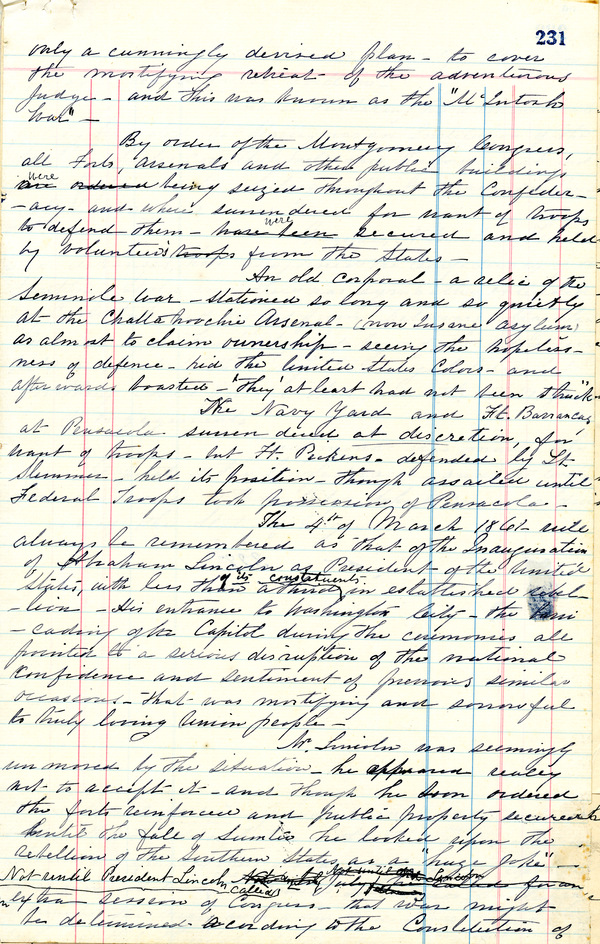 231
only a cunningly devised plan - to cover
the mortifying retreat - of the adventurous
Judge - and this was known as the "McIntosh
War" -
By order of the Montgomery Congress,
all Forts, Arsenals and other public buildings
were
are ordered being seized throughout the Confeder-
-acy - and where surrendered for want of troops
were
to defend them - have been secured and held
by volunteers troops from the States -
An old corporal - a relic of the
Seminole War - stationed so long and so quietly
at the Chattahoochie Arsenal - (now Insane asylum)
as almost to claim ownership - seeing the hopeless-
ness of defence - hid the United States Colors - and
afterwards boasted - 'they' at least had not been struck -
The Navy Yard and Ft. Barrancas,
at Pensacola surrendered at discretion, for
want of troops - but Ft. Pickens - defended by Lt.
Slemmer - held its position - though assailed until
Federal Troops took possession of Pensacola -
The 4th of March 1861 - will
always be remembered as that of the Inauguration
of Abraham Lincoln as President - of the United
of its constituents
States, with less than a third in established rebel-
-lion - His entrance to Washington City - the
-cading of the Capitol during the ceremonies all
pointed to a serious disruption of the national
confidence and sentiment of previous similar
occasions - that was mortifying and sorrowful
to truly loving Union people -
Mr. Lincoln was seemingly
unmoved by the situation - he appeared
not to accept it - and though he soon ordered
the forts reinforced and public property secured
until the fall of Sumter he looked upon the
rebellion of the Southern States as a "huge joke" -
Not until
Not until President Lincoln July for an
called
extra session of Congress - that war might
be determined - according to the Constitution of